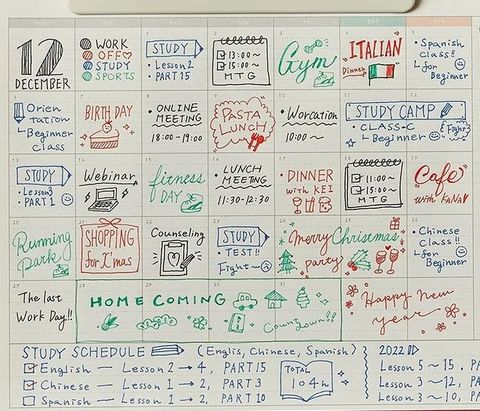 12
DECEMBER
WORK
OFF
STUDY
SPORTS
STUDY
• Lesson 2
• PART 15
13:00~
15:00~
MTG
Gym
ITALIAN
Dinner
• Spanish
class!!
for
Beginner
Orien
tation
Beginner
class
BIRTH DAY
• ONLINE
MEETING
18:00-19:00
PASTA
LUNCH
• Worcation
10:00~
STUDY CAMP
• CLASS-C
Beginner
Fight
STUDY
• Lesson 3
• PART 1
Webinar
fitness
DAY
• LUNCH
MEETING
11:30-12:30
• DINNER
with KEI
11:00~
15:00~
MTG
Cafe
with KANA
Running
Park
SHOPPING
for X'mas
Counseling
STUDY
• TEST!!
Fight~
Merry Christmas
Party
• Chinese
Class!!
for
Beginner
The last
Work Day!!
HOME COMING
Countdown!!
Happy New
year
STUDY SCHEDULE (Englis, Chinese, Spanish)
English — Lesson 2 → 4, PART 15
Chinese — Lesson 1 → 2, PART 3
Spanish — Lesson 1 → 2, PART 10
TOTAL
104h
2022
Lesson 5 ~ 15,
Lesson 3 ~ 12,
Lesson 3 ~ 10,